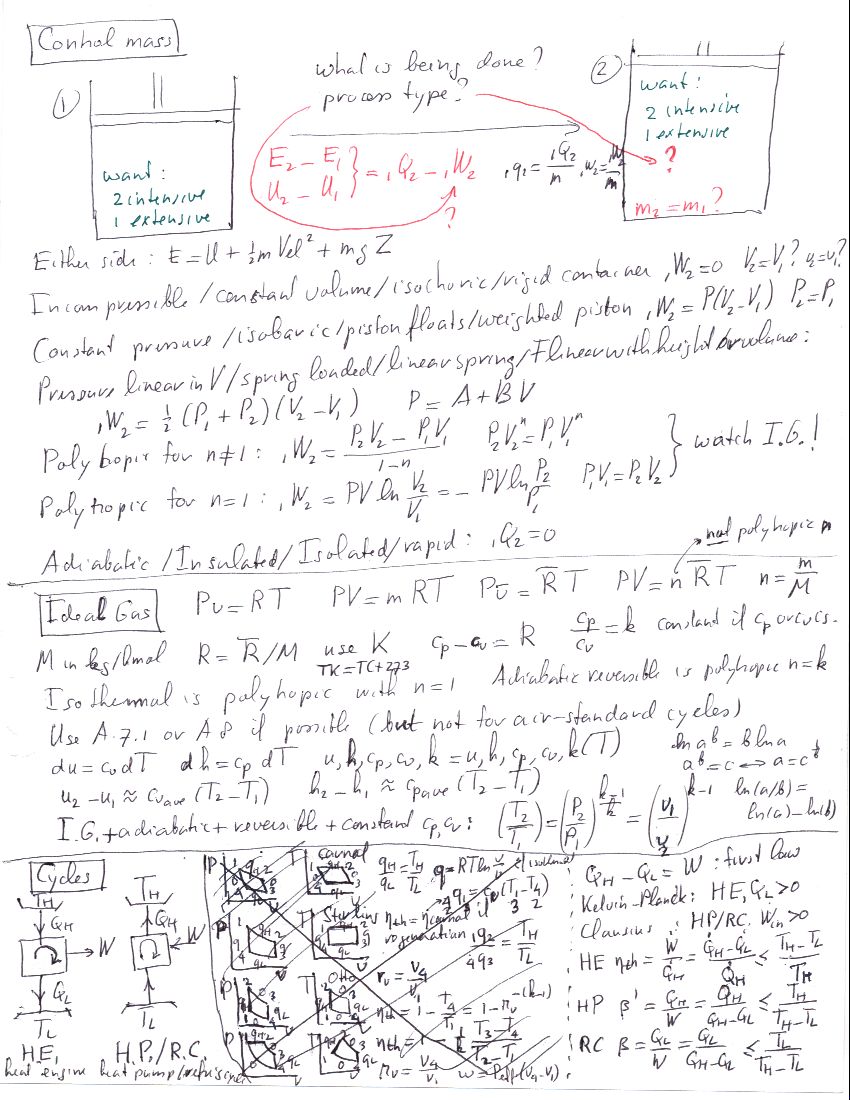 Control mass
what is being done?
process type?
1
want:
2 intensive
1 extensive
E₂ – E₁
U₂ – U₁ } = ₁Q₂ – ₁W₂
?
₁q₂ = ₁Q₂/m , ₁w₂ = ₁W₂/m
2
want:
2 intensive
1 extensive
?
m₂ = m₁?
Either side: E = U + ½m Vel² + mg Z
Incompressible/constant volume/isochoric/rigid container ₁W₂ = 0 V₂ = V₁? v₂ = v₁?
Constant pressure/isobaric/piston floats/weighted piston ₁W₂ = P(V₂ – V₁) P₂ = P₁
Pressure linear in V/spring loaded/linear spring/F linear with height or volume:
₁W₂ = ½ (P₁ + P₂)(V₂ – V₁) P = A + B V
Polytropic for n≠1: ₁W₂ = (P₂V₂ – P₁V₁)/(1 – n) P₂V₂ⁿ = P₁V₁ⁿ
} watch I.G.!
Polytropic for n=1: ₁W₂ = PV ln V₂/V₁ = – PV ln P₂/P₁ P₁V₁ = P₂V₂
Adiabatic/Insulated/Isolated/rapid: ₁Q₂ = 0
not polytropic n
Ideal Gas Pv = RT PV = mRT Pv̄ = R̄T PV = n R̄T n = m/M
M in kg/kmol R = R̄/M use K cp – cv = R cp/cv = k constant if cp or cv is.
TK = TC + 273
Isothermal is polytropic with n=1 Adiabatic reversible is polytropic n=k
Use A.7.1 or A8 if possible (but not for air-standard cycles)
du = cv dT dh = cp dT u, h, cp, cv, k = u, h, cp, cv, k(T)
ln aᵇ = b ln a
aᵇ = c ↔ a = c^(1/b)
u₂ – u₁ ≈ cvave (T₂ – T₁) h₂ – h₁ ≈ cpave (T₂ – T₁)
ln(a/b) =
ln(a) – ln(b)
I.G. + adiabatic + reversible + constant cp, cv: (T₂/T₁) = (P₂/P₁)^((k–1)/k) = (v₁/v₂)^(k–1)
Cycles
TH
QH
W
QL
TL
HE,
heat engine
TH
QH
W
TL
H.P./R.C.
heat pump/refriger
P
T
carnot
qH/qL = TH/TL
Stirling
ηth = ηcarnot if
regeneration
Otto
rv = v₄/v₁
QH – QL = W : first law
Kelvin-Planck: HE, QL > 0
Clausius : HP/RC. Win > 0
HE ηth = W/QH = (QH – QL)/QH ≤ (TH – TL)/TH
HP β' = QH/W = QH/(QH – QL) ≤ TH/(TH – TL)
RC β = QL/W = QL/(QH – QL) ≤ TL/(TH – TL)